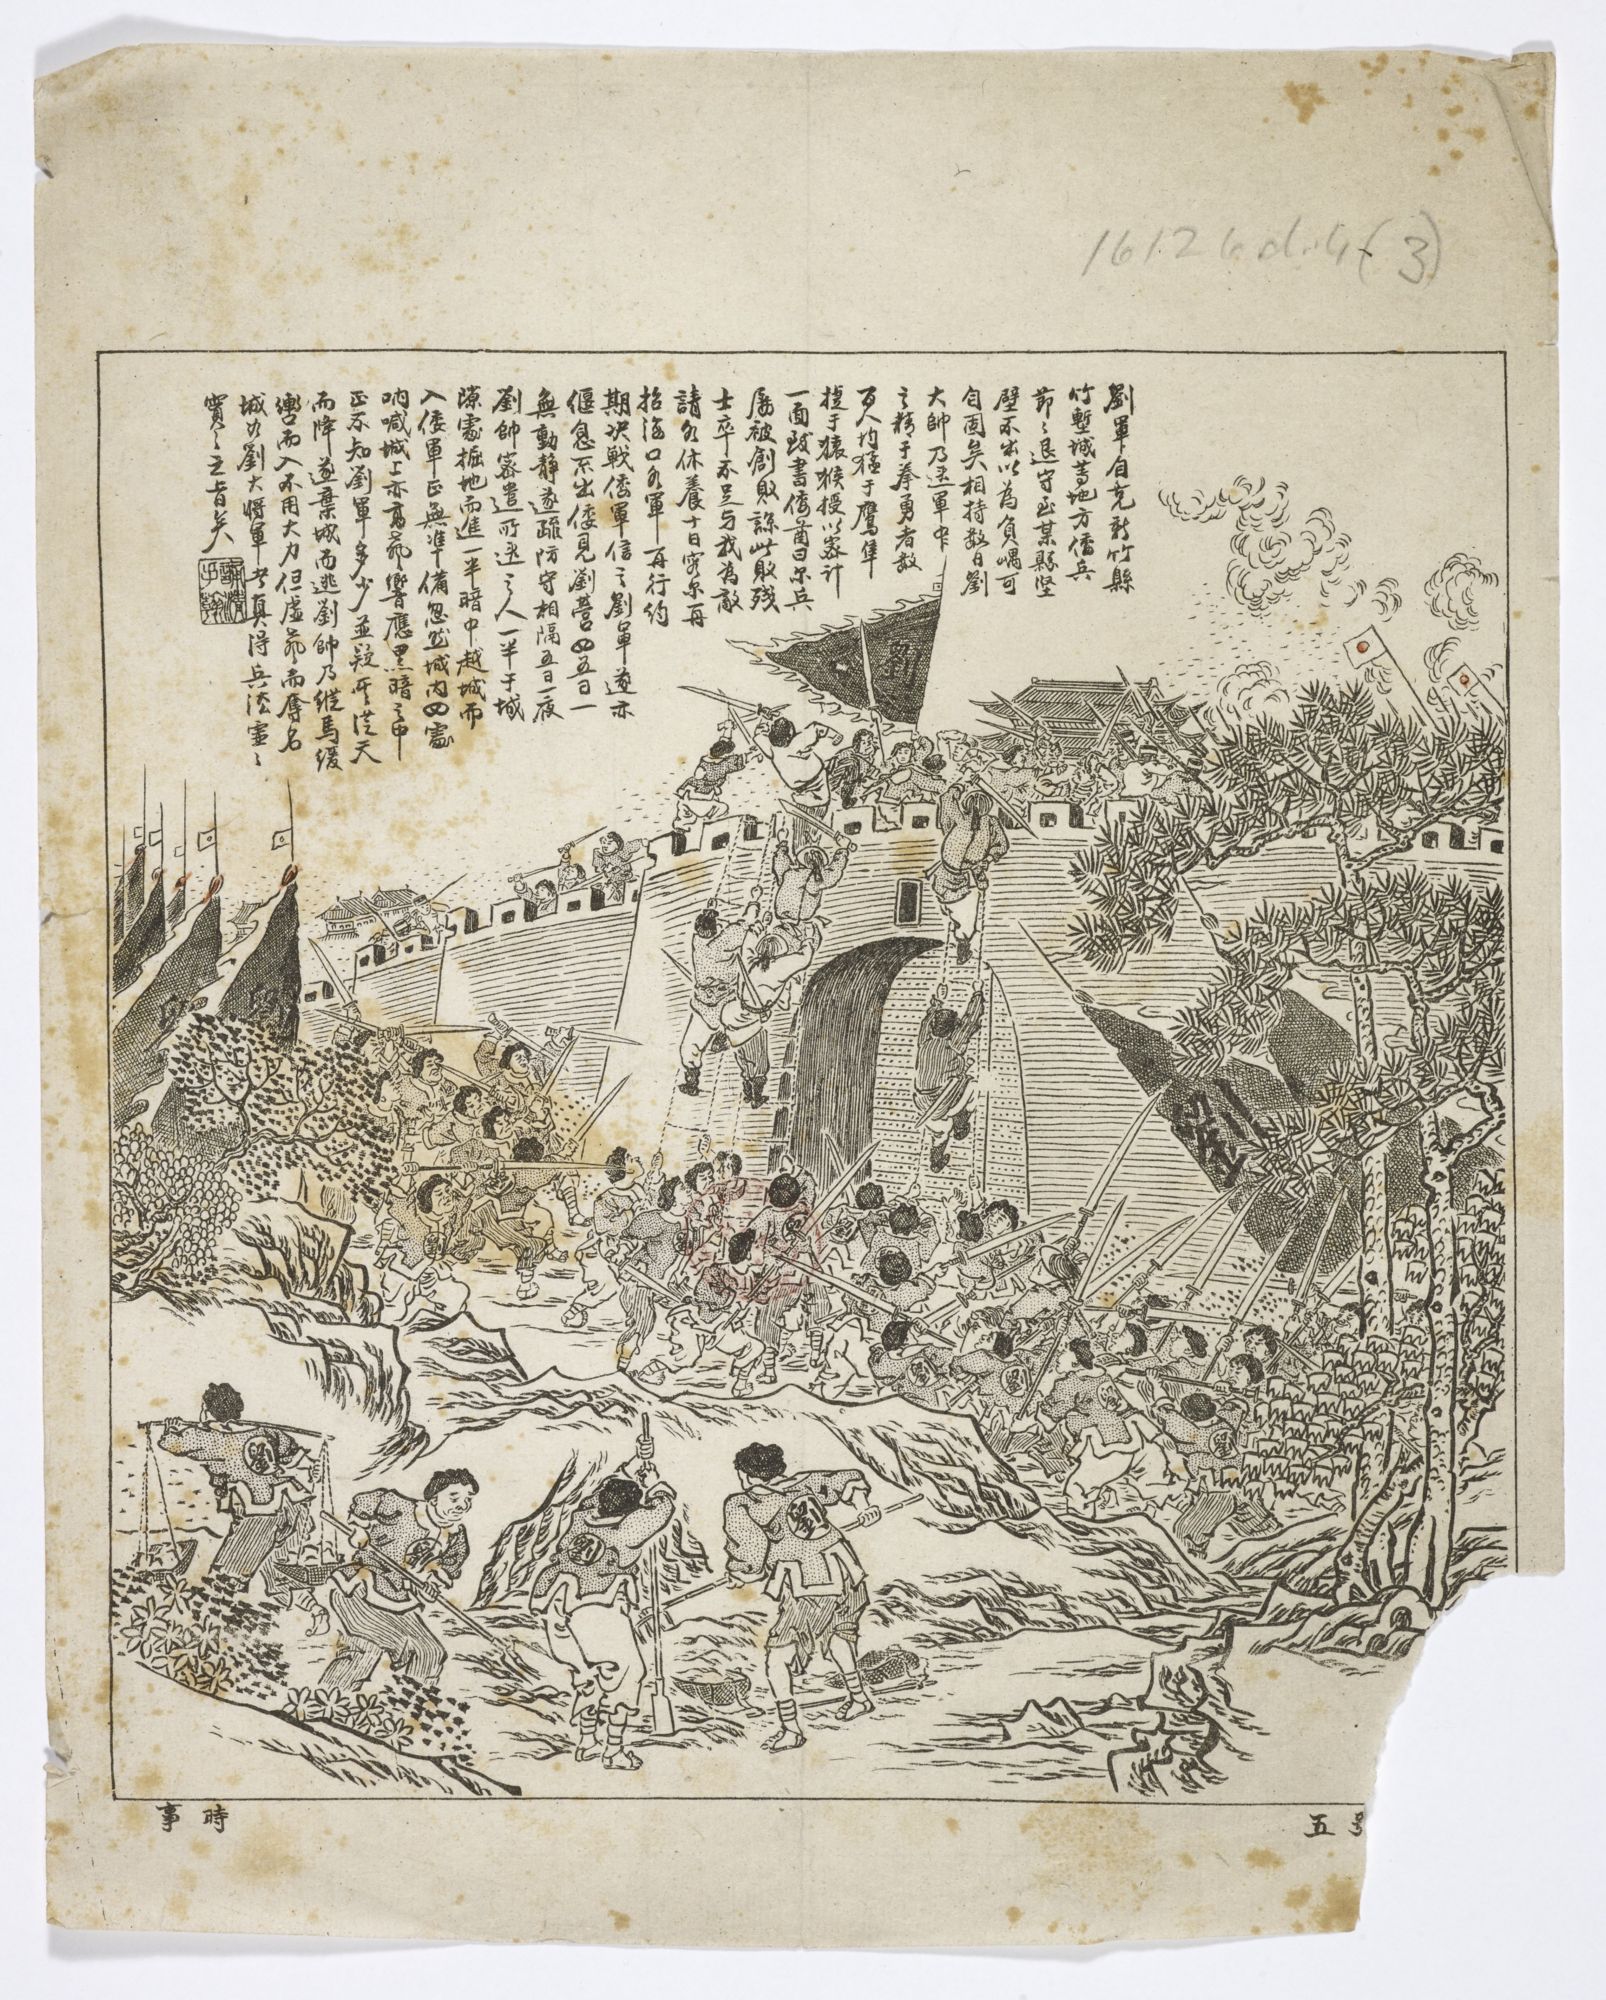 1612 6.d.4(3)
劉軍自克新竹縣
竹塹城等地方倭兵
節〻退守至某縣堅
壁不出以為負嵎可
自固矣相持數日劉
大帥乃選軍中
之精于拳勇者數
百人均猛于鷹隼
捷于猿猴授以密計
一面致書倭酋曰尔兵
屢被創敗諒此敗殘
士卒不足与我為敵
請各休養十日容尔再
招海口各軍再行約
期決戰倭軍信之劉軍遂亦
偃息不出倭見劉營四五日一
無動靜遂疏防守相隔五日一夜
劉帥密遣所選之人一半于城
隙處掘地而進一半暗中越城而
入倭軍正無準備忽然城內四處
吶喊城上亦高聲響應黑暗之中
正不知劉軍多少並疑其從天
而降遂棄城而逃劉帥乃縱馬緩
轡而入不用大力但虛聲而奪名
城如劉大將軍者真得兵法虛〻
實〻之旨矣
劉
劉
劉
劉
劉
劉
劉
五
時事